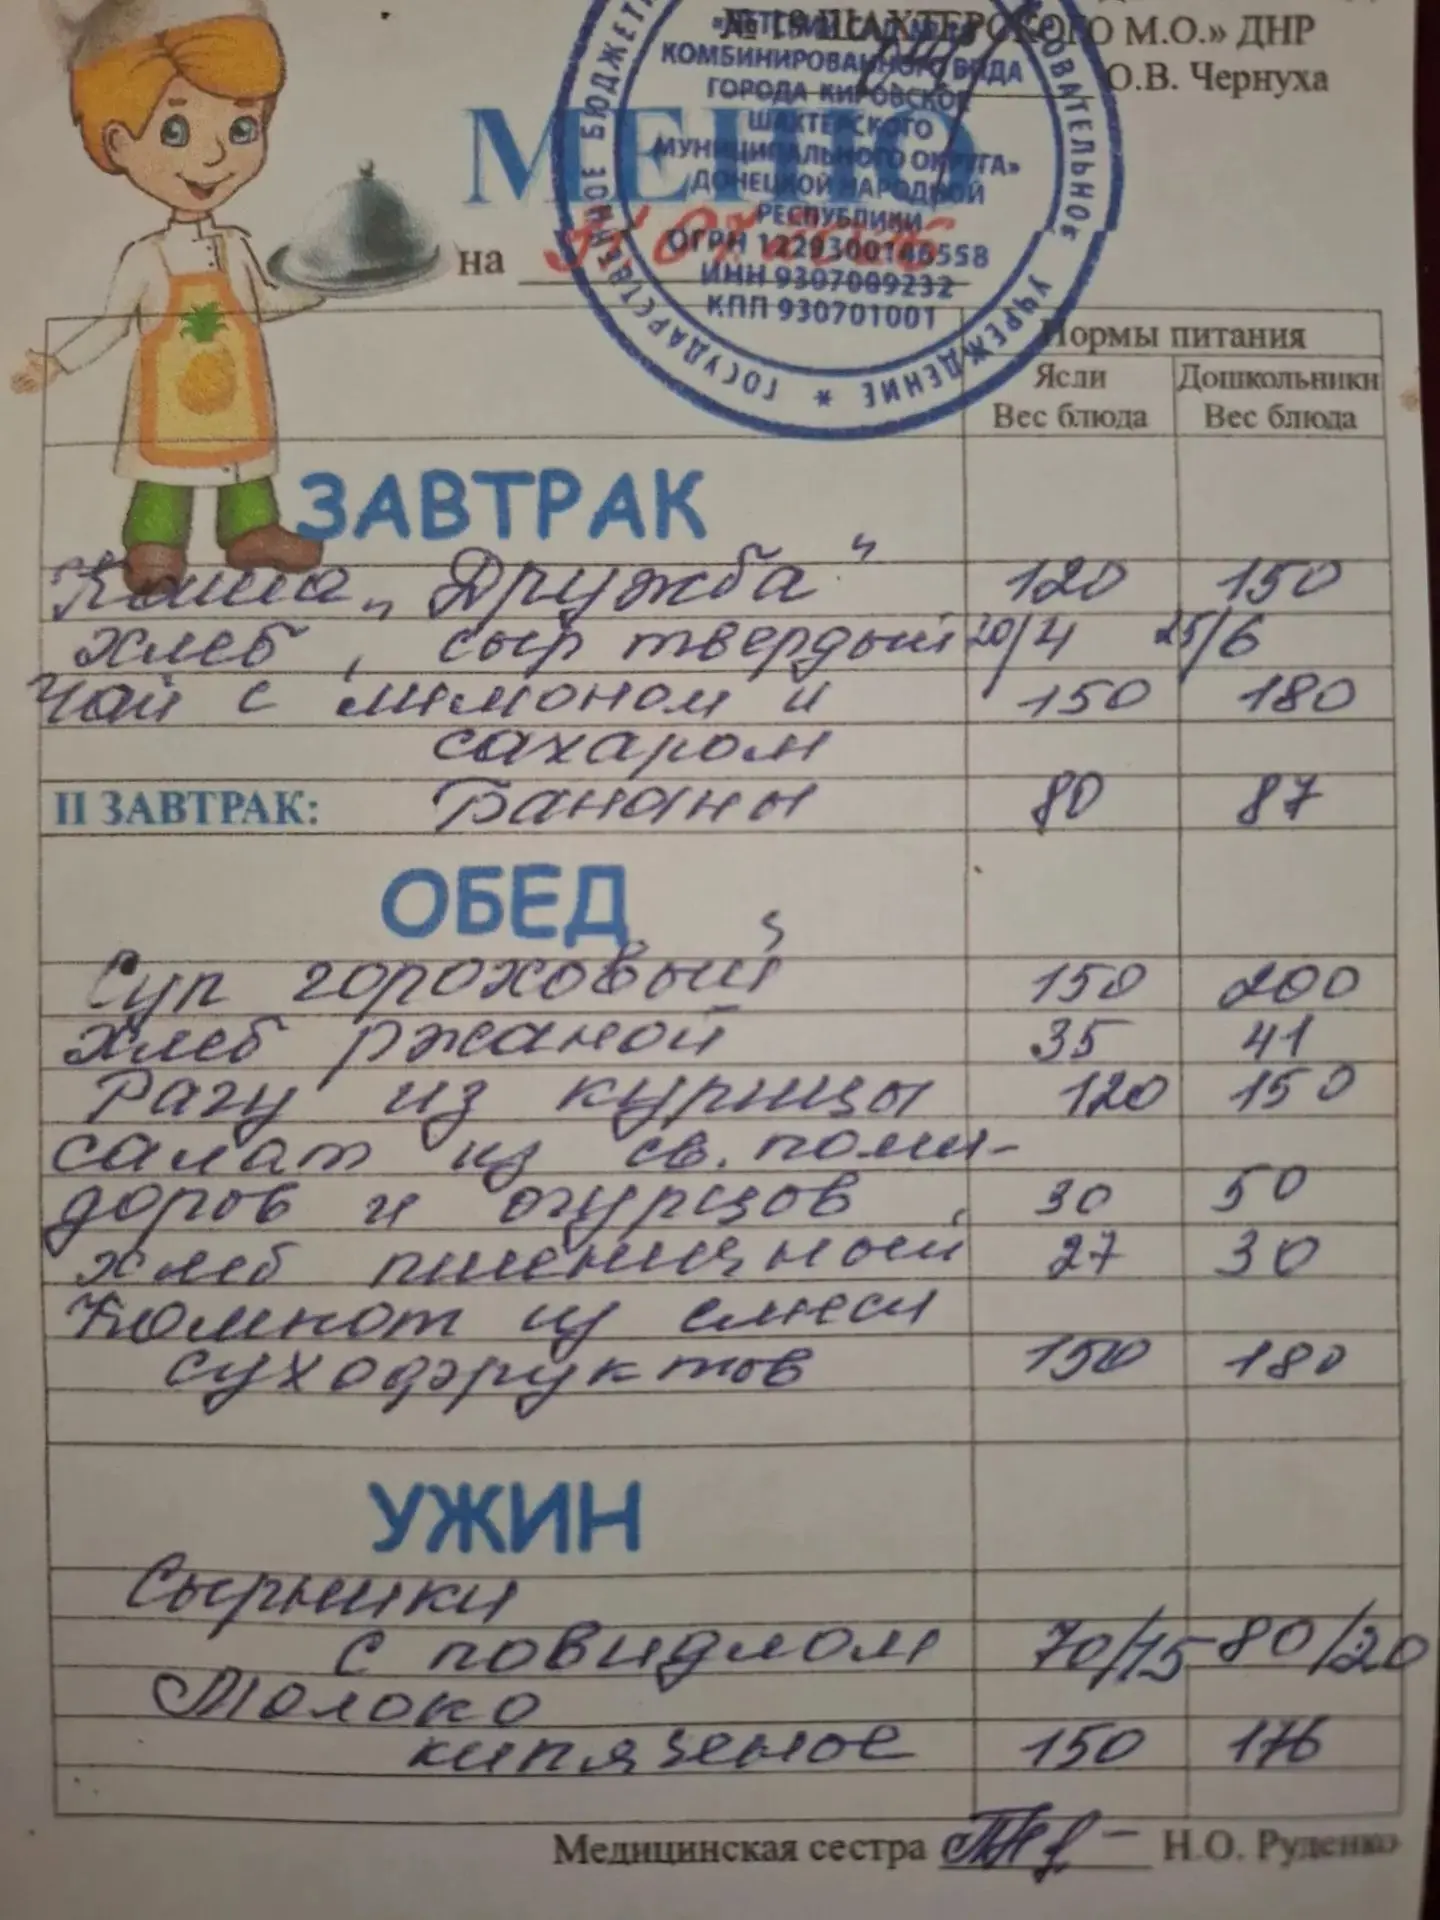 № 19 ШАХТЕРСКОГО М.О.» ДНР
О.В. Чернуха
КОМБИНИРОВАННОГО ВИДА
ГОРОДА КИРОВСКОЕ
ШАХТЕРСКОГО
МУНИЦИПАЛЬНОГО ОКРУГА»
ДОНЕЦКОЙ НАРОДНОЙ
РЕСПУБЛИКИ
ОГРН 1229300146558
ИНН 9307009232
КПП 930701001
ГОСУДАРСТВЕННОЕ БЮДЖЕТ
ОВАТЕЛЬНОЕ УЧРЕЖДЕНИЕ *
МЕНЮ
на
Нормы питания
Ясли Дошкольники
Вес блюда Вес блюда
ЗАВТРАК
Каша „Дружба" 120 150
хлеб, сыр твердый 20/4 25/6
Чай с лимоном и 150 180
сахаром
II ЗАВТРАК: Бананы 80 87
ОБЕД
Суп гороховый 150 200
Хлеб ржаной 35 41
Рагу из курицы 120 150
салат из св. поми-
доров и огурцов 30 50
хлеб пшеничный 27 30
Компот из смеси
сухофруктов 150 180
УЖИН
Сырники
с повидлом 70/15 80/20
Молоко
кипяченое 150 176
Медицинская сестра Н.О. Руденко